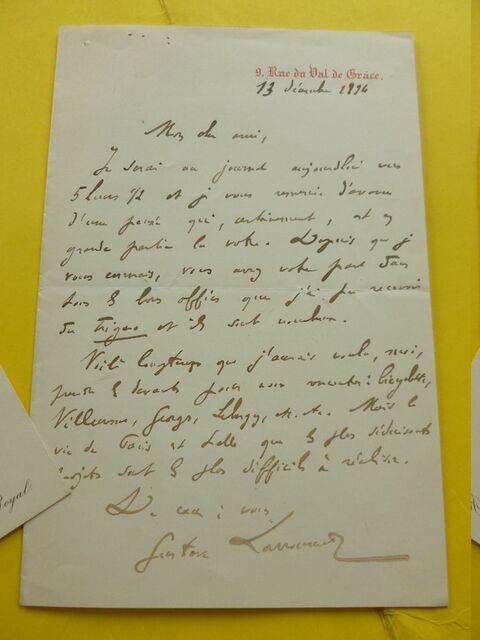 9. Rue du Val de Grâce.
13 décembre 1894
Mon cher ami,
Je serai au journal aujourd'hui vers
5 heures 1/2 et je vous remercie d'avance
d'une pensée qui, certainement, est en
grande partie la votre. Depuis que je
vous connais, vous avez votre part dans
tous les bons offices que j'ai pu recevoir
du Figaro et ils sont nombreux.
Voilà longtemps que j'aurais voulu, moi,
les devants pour vous : bicyclette,
Villemessant, George, etc. etc. Mais la
vie de Paris est telle que les plus séduisants
projets sont les plus difficiles à réaliser.
De cœur à vous
Gustave Larroumet
Royal.